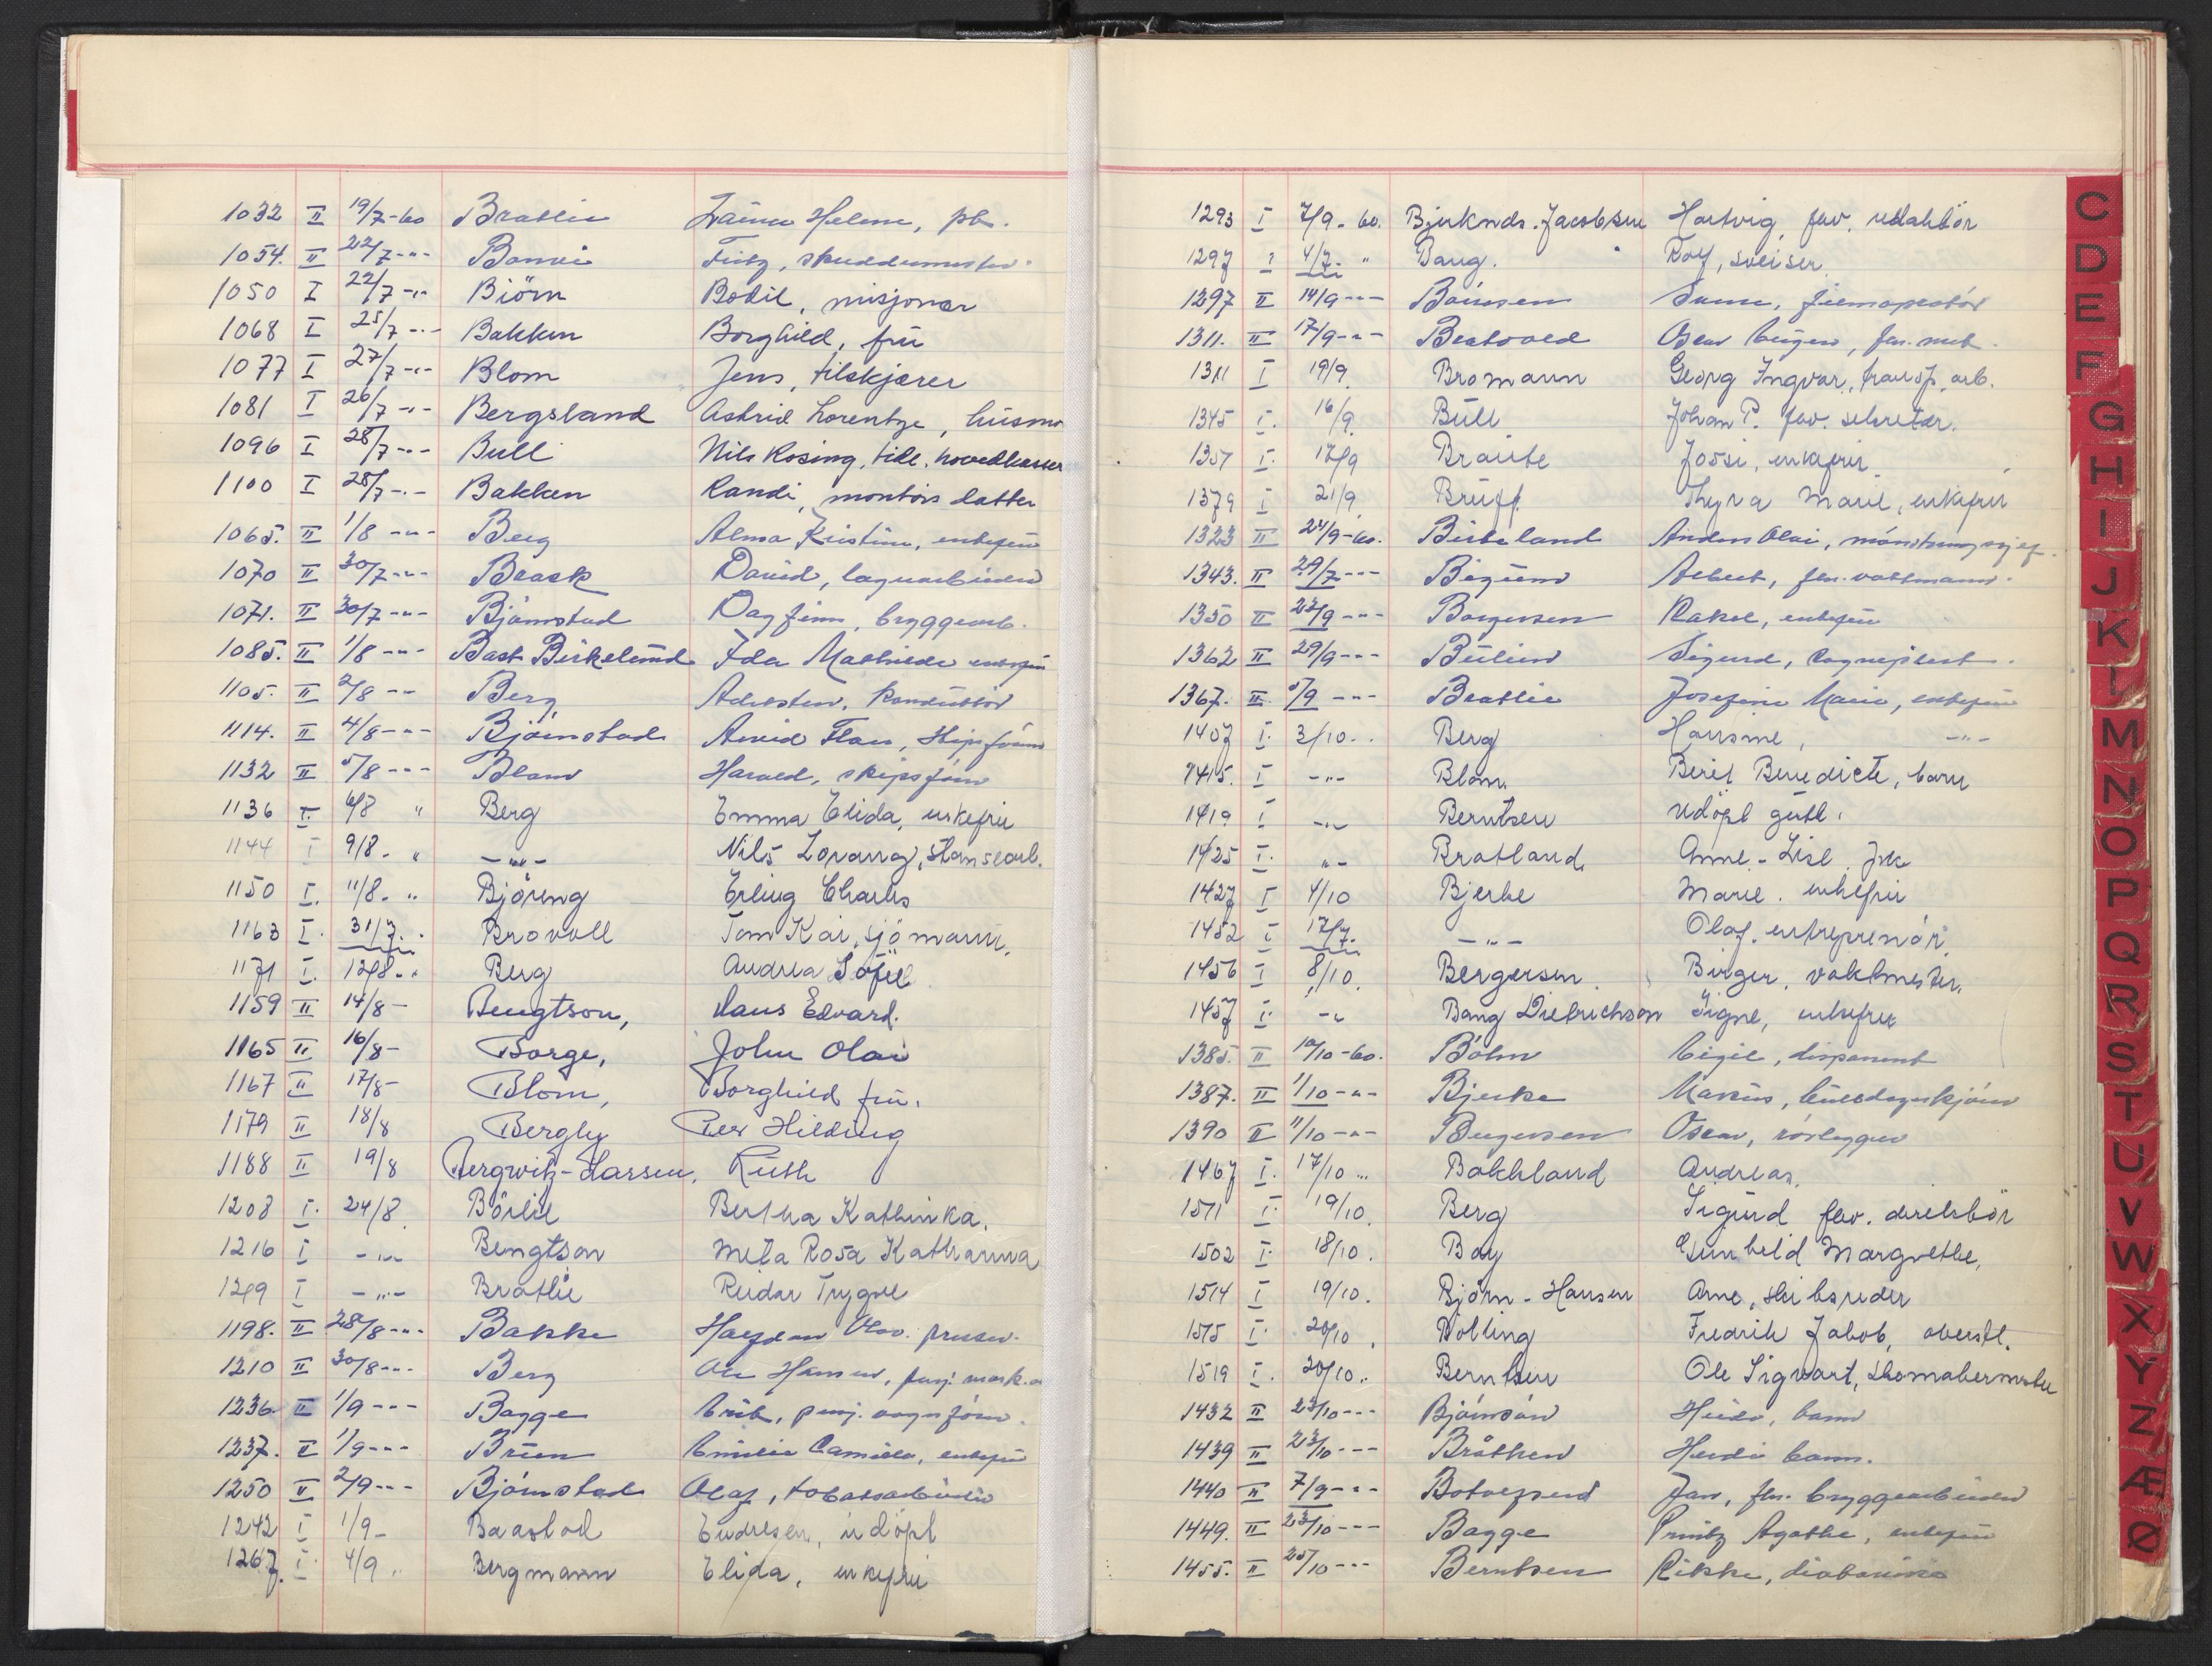 1032 II 19/7-60 Bratlie Helene, pk.
1054. II 22/7-"- Fritz, skreddermester.
1050 I 22/7-"- Biörn Bodil, misjonær
1068 I 25/7-"- Bakken Borghild, frü
1077 I 27/7-"- Blom Jens, tilskjærer
1081 I 26/7-"- Bergsland Astrid Lorentze, hüsmo
1096 I 28/7-"- Bull Nils Rosing, tidl. hovedkasser
1100 I 28/7-"- Bakken Randi, montörs datter
1065. II 1/8-"- Berg Alma Kristine, enkefrü
1070 II 30/7-"- Brask David, lagerarbeider
1071. II 30/7-"- Björnstad Dagfinn, bryggearb.
1085. II 1/8-"- Bast Birkelünd Ida Mathilde enkefrü
1105. II 2/8-"- Berg Adelsten, kondüktör
1114. II 4/8-"- Björnstad Arvid
1132 II 5/8-"- Harald, skipsförer
1136 I. 6/8 " Berg Emma Elida, enkefrü
1144 I 9/8. " -"- Nils
1150 I. 11/8. " Björeng Erling Charles
1163 I. 31/7. . Brovoll Tom Kai, sjömann.
1171 I. 12/8. " Berg Andrea Sofie
1159 II 14/8- Bengtson, Hans Edvard.
1165 II 16/8- Borge, John Olai
1167 II 17/8- Blom, Borghild frü.
1179 II 18/8 Bergby Per Hilding
1188 II 19/8 Bergwitz-Larsen, Rüth
1208 I. 24/8. Börlie Bertha Kathinka.
1216 I -"- Bengtson Meta Rosa Katharina
1219 I -"- Brathie Reidar Trygve
1198. II 28/8-"- Bakke
1210 II 30/8-"- Berg Ole Hansen, pensj.
1236. II 1/9-"- Bagge pensj. vognförer.
1237. II 1/9-"- Brün Emilie Camilla, enkefrü
1250 II 2/9-"- Björnstad Olaf, tobaksarbeider
1242 I 1/9- Baastad Endresen, üdöpt
1267. I. 4/9 " Bergmann Elida, enkefrü
1293 I 7/9-60. Bjerknds. Jacobsen Hartvig, fhv. redaktör
1297 I 4/7. " Bang. Rolf, sveiser
1297 II 14/9-"-
1311. II 17/9-"- Oscar
1311 I 19/9. Bromann Georg Ingvar, transp. arb.
1345 I. 16/9. Büll Johan P. fhv. sekretær.
1357 I. 17/9 Braüte Jossi, enkefrü
1379 I 21/9 Brüff Thyra Marie, enkefrü
1323 II 24/9-60. Birkeland Anders Olai, mönstringssjef.
1343. II 29/7-"- Albert, fhv. vaktmann.
1350 II 23/9-"- Borgersen Rakel, enkefrü
1362 II 29/9-"- Bülien Sigurd,
1367. II 5/9-"- Bratlie Josefine Marie, enkefrü
1407 I. 3/10. . Berg Hansine, -"-
1415. I -"- Blom. Berit Benedicte, barn
1419 I -"- Berntsen udöpt gütt.
1425 I. "- Bratland Anne-Lise, frk
1427 I 4/10 Bjerke Marie. enkefrü
1452 I 17/7. -"- Olaf. entreprenör
1456 I 8/10. Bergersen. Birger, vaktmester.
1457 I. -"- Bang Dietrichson Signe, enkefrü
1385. II 10/10-60. Böhn Eigil, disponent
1387. II 1/10-"- Bjerke Marius,
1390 II 11/10-"- Oscar, rörlegger
1467 I. 17/10 " Bakkland Andreas.
1511 I. 19/10. Berg Sigürd, fhv. direktör
1502 I. 18/10. Bay Gunhild Margrethe,
1514 I 19/10. Björn-Hansen Arne, skibsreder
1515 I. 20/10. Bölling Fredrik Jakob, oberstl.
1519 I. 20/10.. Berntsen Ole Sigvart, skomakermester
1432 II 23/10-"- barn
1439 II 23/10-"- Bråthen Heidi barn.
1440 II 7/9-"- fhv. bryggearbeider
1449. II 23/10-"- Bagge Agathe, enkefrü
1455. II 25/10-"- Berntsen
C
D
E
F
G
H
I
J
K
L
M
N
O
P
Q
R
S
T
U
V
W
X
Y
Z
Æ
Ø